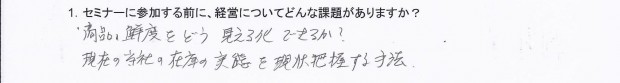 1. セミナーに参加する前に、経営についてどんな課題がありますか？
・商品の鮮度をどう見える化できるか？
現在の当社の在庫の実態を現状把握する方法